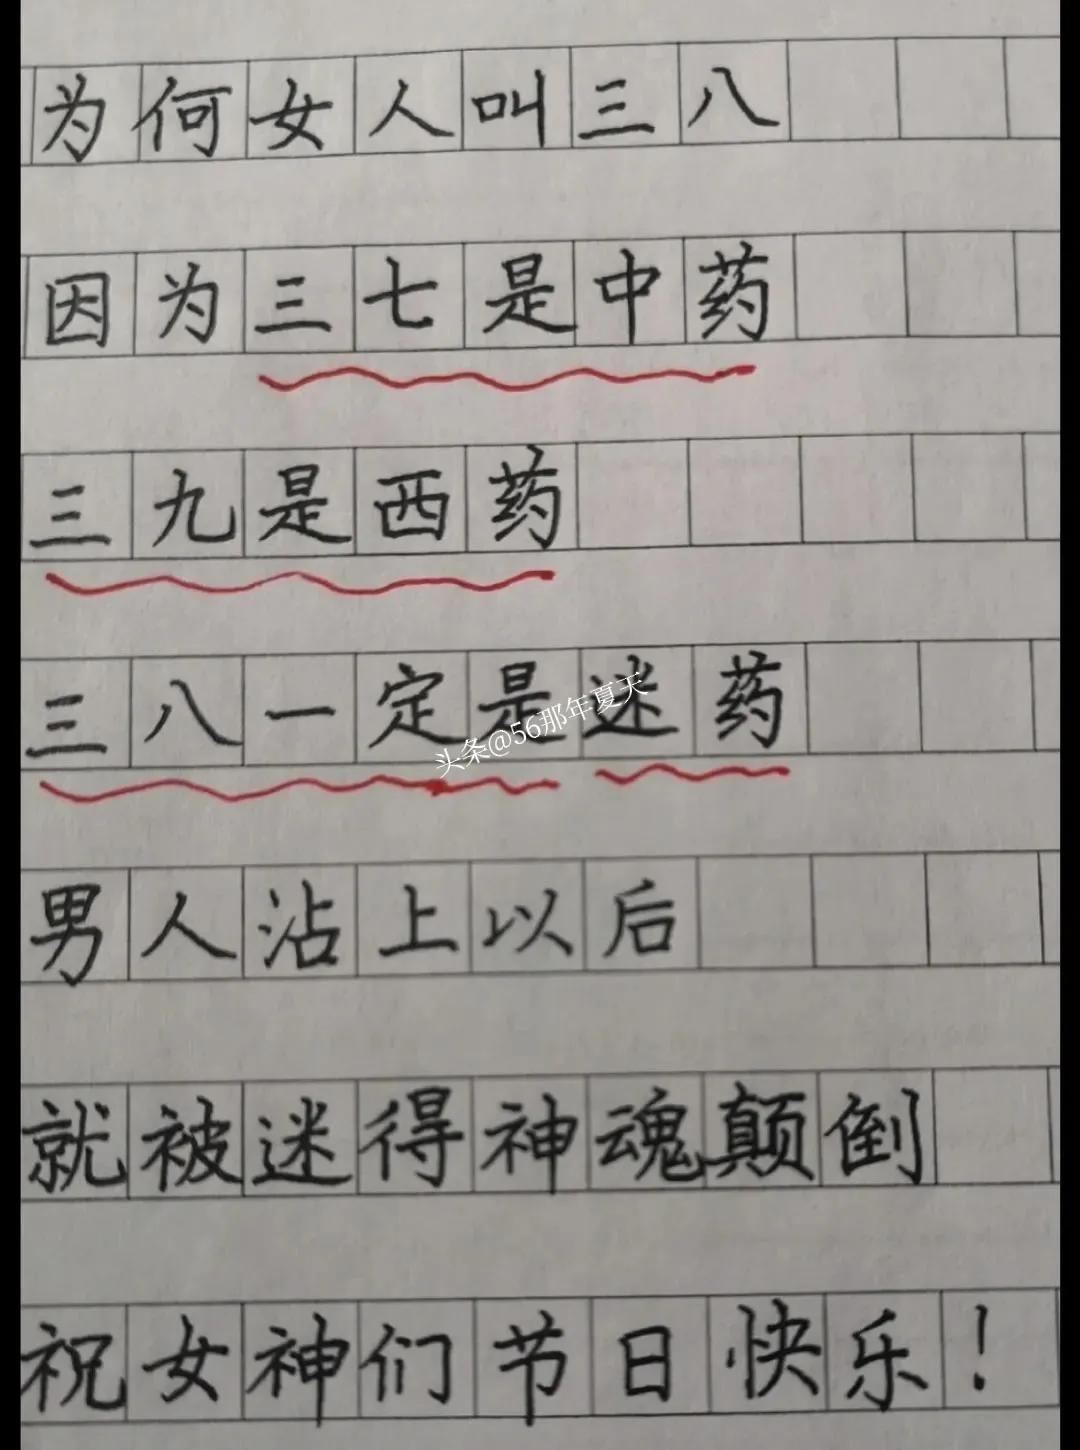 为何女人叫三八
因为三七是中药
三九是西药
三八一定是迷药
头条@56那年夏天
男人沾上以后
就被迷得神魂颠倒
祝女神们节日快乐！